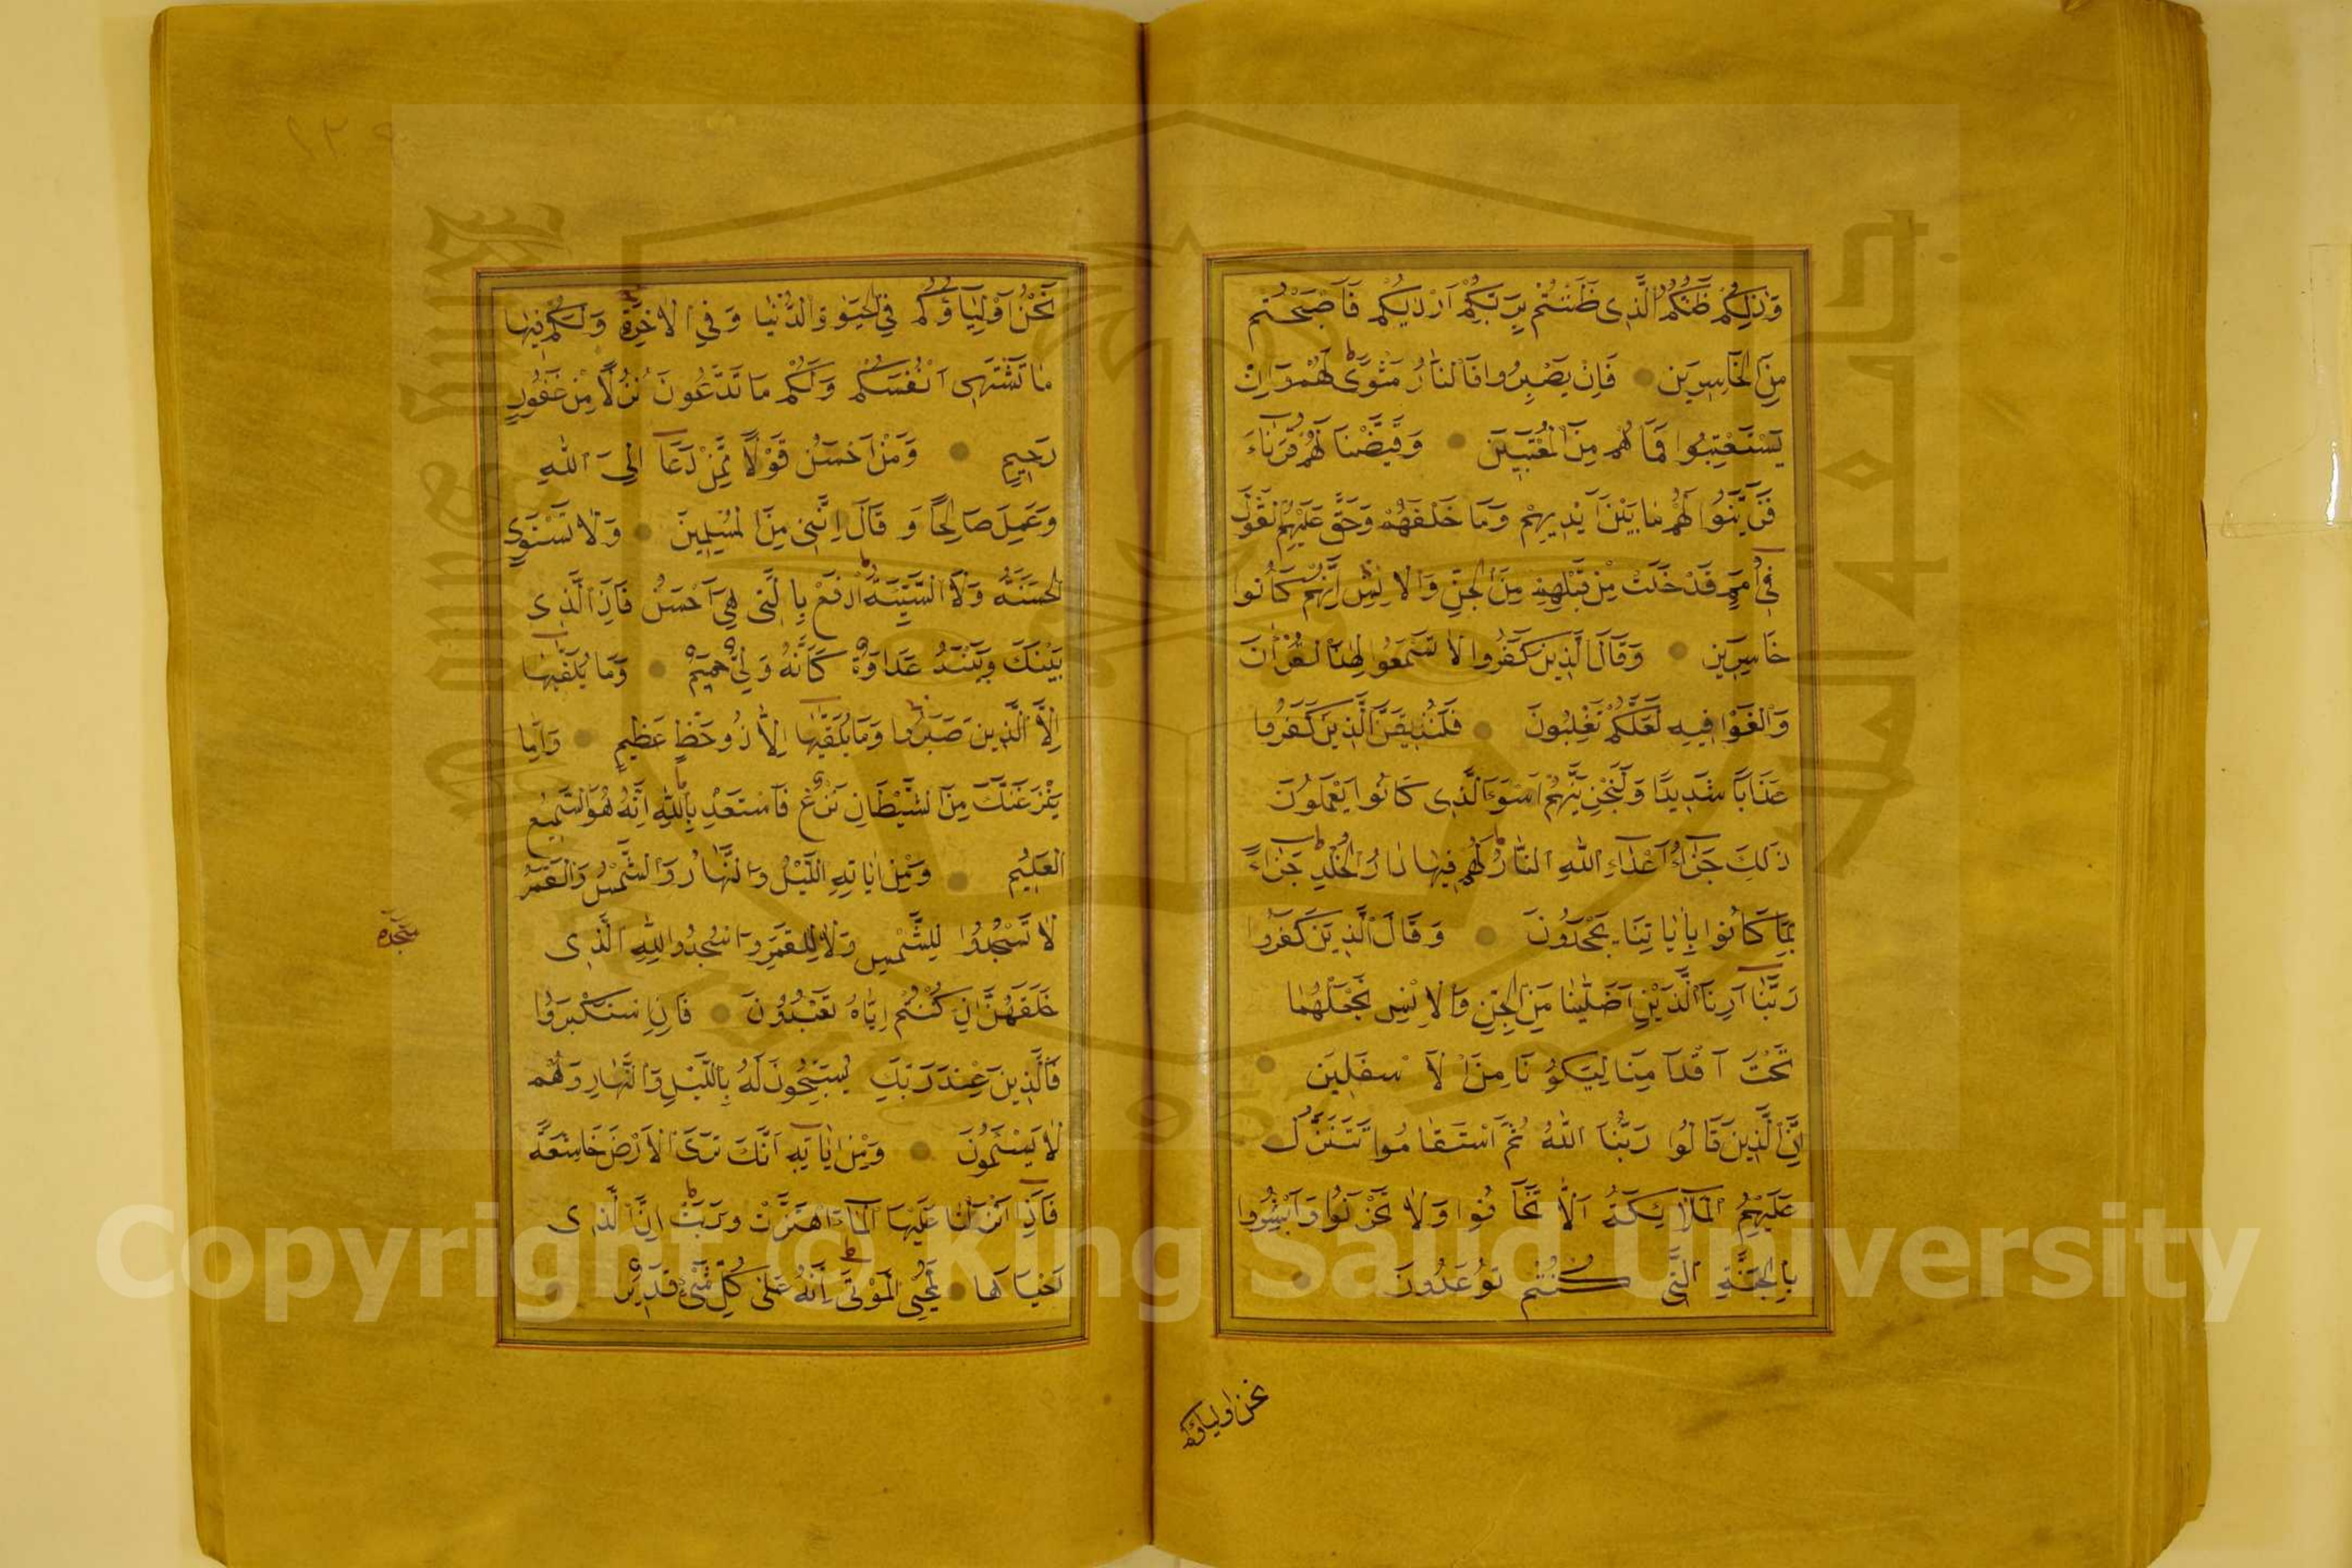 وَذٰلِكُمْ ظَنُّكُمُ الَّذِى ظَنَنْتُمْ بِرَبِّكُمْ اَرْدٰيكُمْ فَاَصْبَحْتُمْ
مِنَ الْخَاسِرِينَ فَاِنْ يَصْبِرُوا فَالنَّارُ مَثْوًى لَهُمْ وَاِنْ
يَسْتَعْتِبُوا فَمَا هُمْ مِنَ الْمُعْتَبِينَ وَقَيَّضْنَا لَهُمْ قُرَنَاءَ
فَزَيَّنُوا لَهُمْ مَا بَيْنَ اَيْدِيهِمْ وَمَا خَلْفَهُمْ وَحَقَّ عَلَيْهِمُ الْقَوْلُ
فِى اُمَمٍ قَدْ خَلَتْ مِنْ قَبْلِهِمْ مِنَ الْجِنِّ وَالْاِنْسِ اِنَّهُمْ كَانُوا
خَاسِرِينَ وَقَالَ الَّذِينَ كَفَرُوا لَا تَسْمَعُوا لِهٰذَا الْقُرْاٰنِ
وَالْغَوْا فِيهِ لَعَلَّكُمْ تَغْلِبُونَ فَلَنُذِيقَنَّ الَّذِينَ كَفَرُوا
عَذَابًا شَدِيدًا وَلَنَجْزِيَنَّهُمْ اَسْوَءَ الَّذِى كَانُوا يَعْمَلُونَ
ذٰلِكَ جَزَاءُ اَعْدَاءِ اللّٰهِ النَّارُ لَهُمْ فِيهَا دَارُ الْخُلْدِ جَزَاءً
بِمَا كَانُوا بِاٰيَاتِنَا يَجْحَدُونَ وَقَالَ الَّذِينَ كَفَرُوا
رَبَّنَا اَرِنَا الَّذَيْنِ اَضَلَّانَا مِنَ الْجِنِّ وَالْاِنْسِ نَجْعَلْهُمَا
تَحْتَ اَقْدَامِنَا لِيَكُونَا مِنَ الْاَسْفَلِينَ
اِنَّ الَّذِينَ قَالُوا رَبُّنَا اللّٰهُ ثُمَّ اسْتَقَامُوا تَتَنَزَّلُ
عَلَيْهِمُ الْمَلٰائِكَةُ اَلَّا تَخَافُوا وَلَا تَحْزَنُوا وَاَبْشِرُوا
بِالْجَنَّةِ الَّتِى كُنْتُمْ تُوعَدُونَ
نحن اولياؤكم
نَحْنُ اَوْلِيَاؤُكُمْ فِى الْحَيٰوةِ الدُّنْيَا وَفِى الْاٰخِرَةِ وَلَكُمْ فِيهَا
مَا تَشْتَهِى اَنْفُسُكُمْ وَلَكُمْ فِيهَا مَا تَدَّعُونَ نُزُلًا مِنْ غَفُورٍ
رَحِيمٍ وَمَنْ اَحْسَنُ قَوْلًا مِمَّنْ دَعَا اِلَى اللّٰهِ
وَعَمِلَ صَالِحًا وَقَالَ اِنَّنِى مِنَ الْمُسْلِمِينَ وَلَا تَسْتَوِى
الْحَسَنَةُ وَلَا السَّيِّئَةُ اِدْفَعْ بِالَّتِى هِىَ اَحْسَنُ فَاِذَا الَّذِى
بَيْنَكَ وَبَيْنَهُ عَدَاوَةٌ كَاَنَّهُ وَلِىٌّ حَمِيمٌ وَمَا يُلَقّٰيهَا
اِلَّا الَّذِينَ صَبَرُوا وَمَا يُلَقّٰيهَا اِلَّا ذُو حَظٍّ عَظِيمٍ وَاِمَّا
يَنْزَغَنَّكَ مِنَ الشَّيْطَانِ نَزْغٌ فَاسْتَعِذْ بِاللّٰهِ اِنَّهُ هُوَ السَّمِيعُ
الْعَلِيمُ وَمِنْ اٰيَاتِهِ اللَّيْلُ وَالنَّهَارُ وَالشَّمْسُ وَالْقَمَرُ
لَا تَسْجُدُوا لِلشَّمْسِ وَلَا لِلْقَمَرِ وَاسْجُدُوا لِلّٰهِ الَّذِى
سجده
خَلَقَهُنَّ اِنْ كُنْتُمْ اِيَّاهُ تَعْبُدُونَ فَاِنِ اسْتَكْبَرُوا
فَالَّذِينَ عِنْدَ رَبِّكَ يُسَبِّحُونَ لَهُ بِاللَّيْلِ وَالنَّهَارِ وَهُمْ
لَا يَسْئَمُونَ وَمِنْ اٰيَاتِهِ اَنَّكَ تَرَى الْاَرْضَ خَاشِعَةً
فَاِذَا اَنْزَلْنَا عَلَيْهَا الْمَاءَ اهْتَزَّتْ وَرَبَتْ اِنَّ الَّذِى
اَحْيَاهَا لَمُحْيِى الْمَوْتٰى اِنَّهُ عَلٰى كُلِّ شَىْءٍ قَدِيرٌ
Copyright © King Saud University